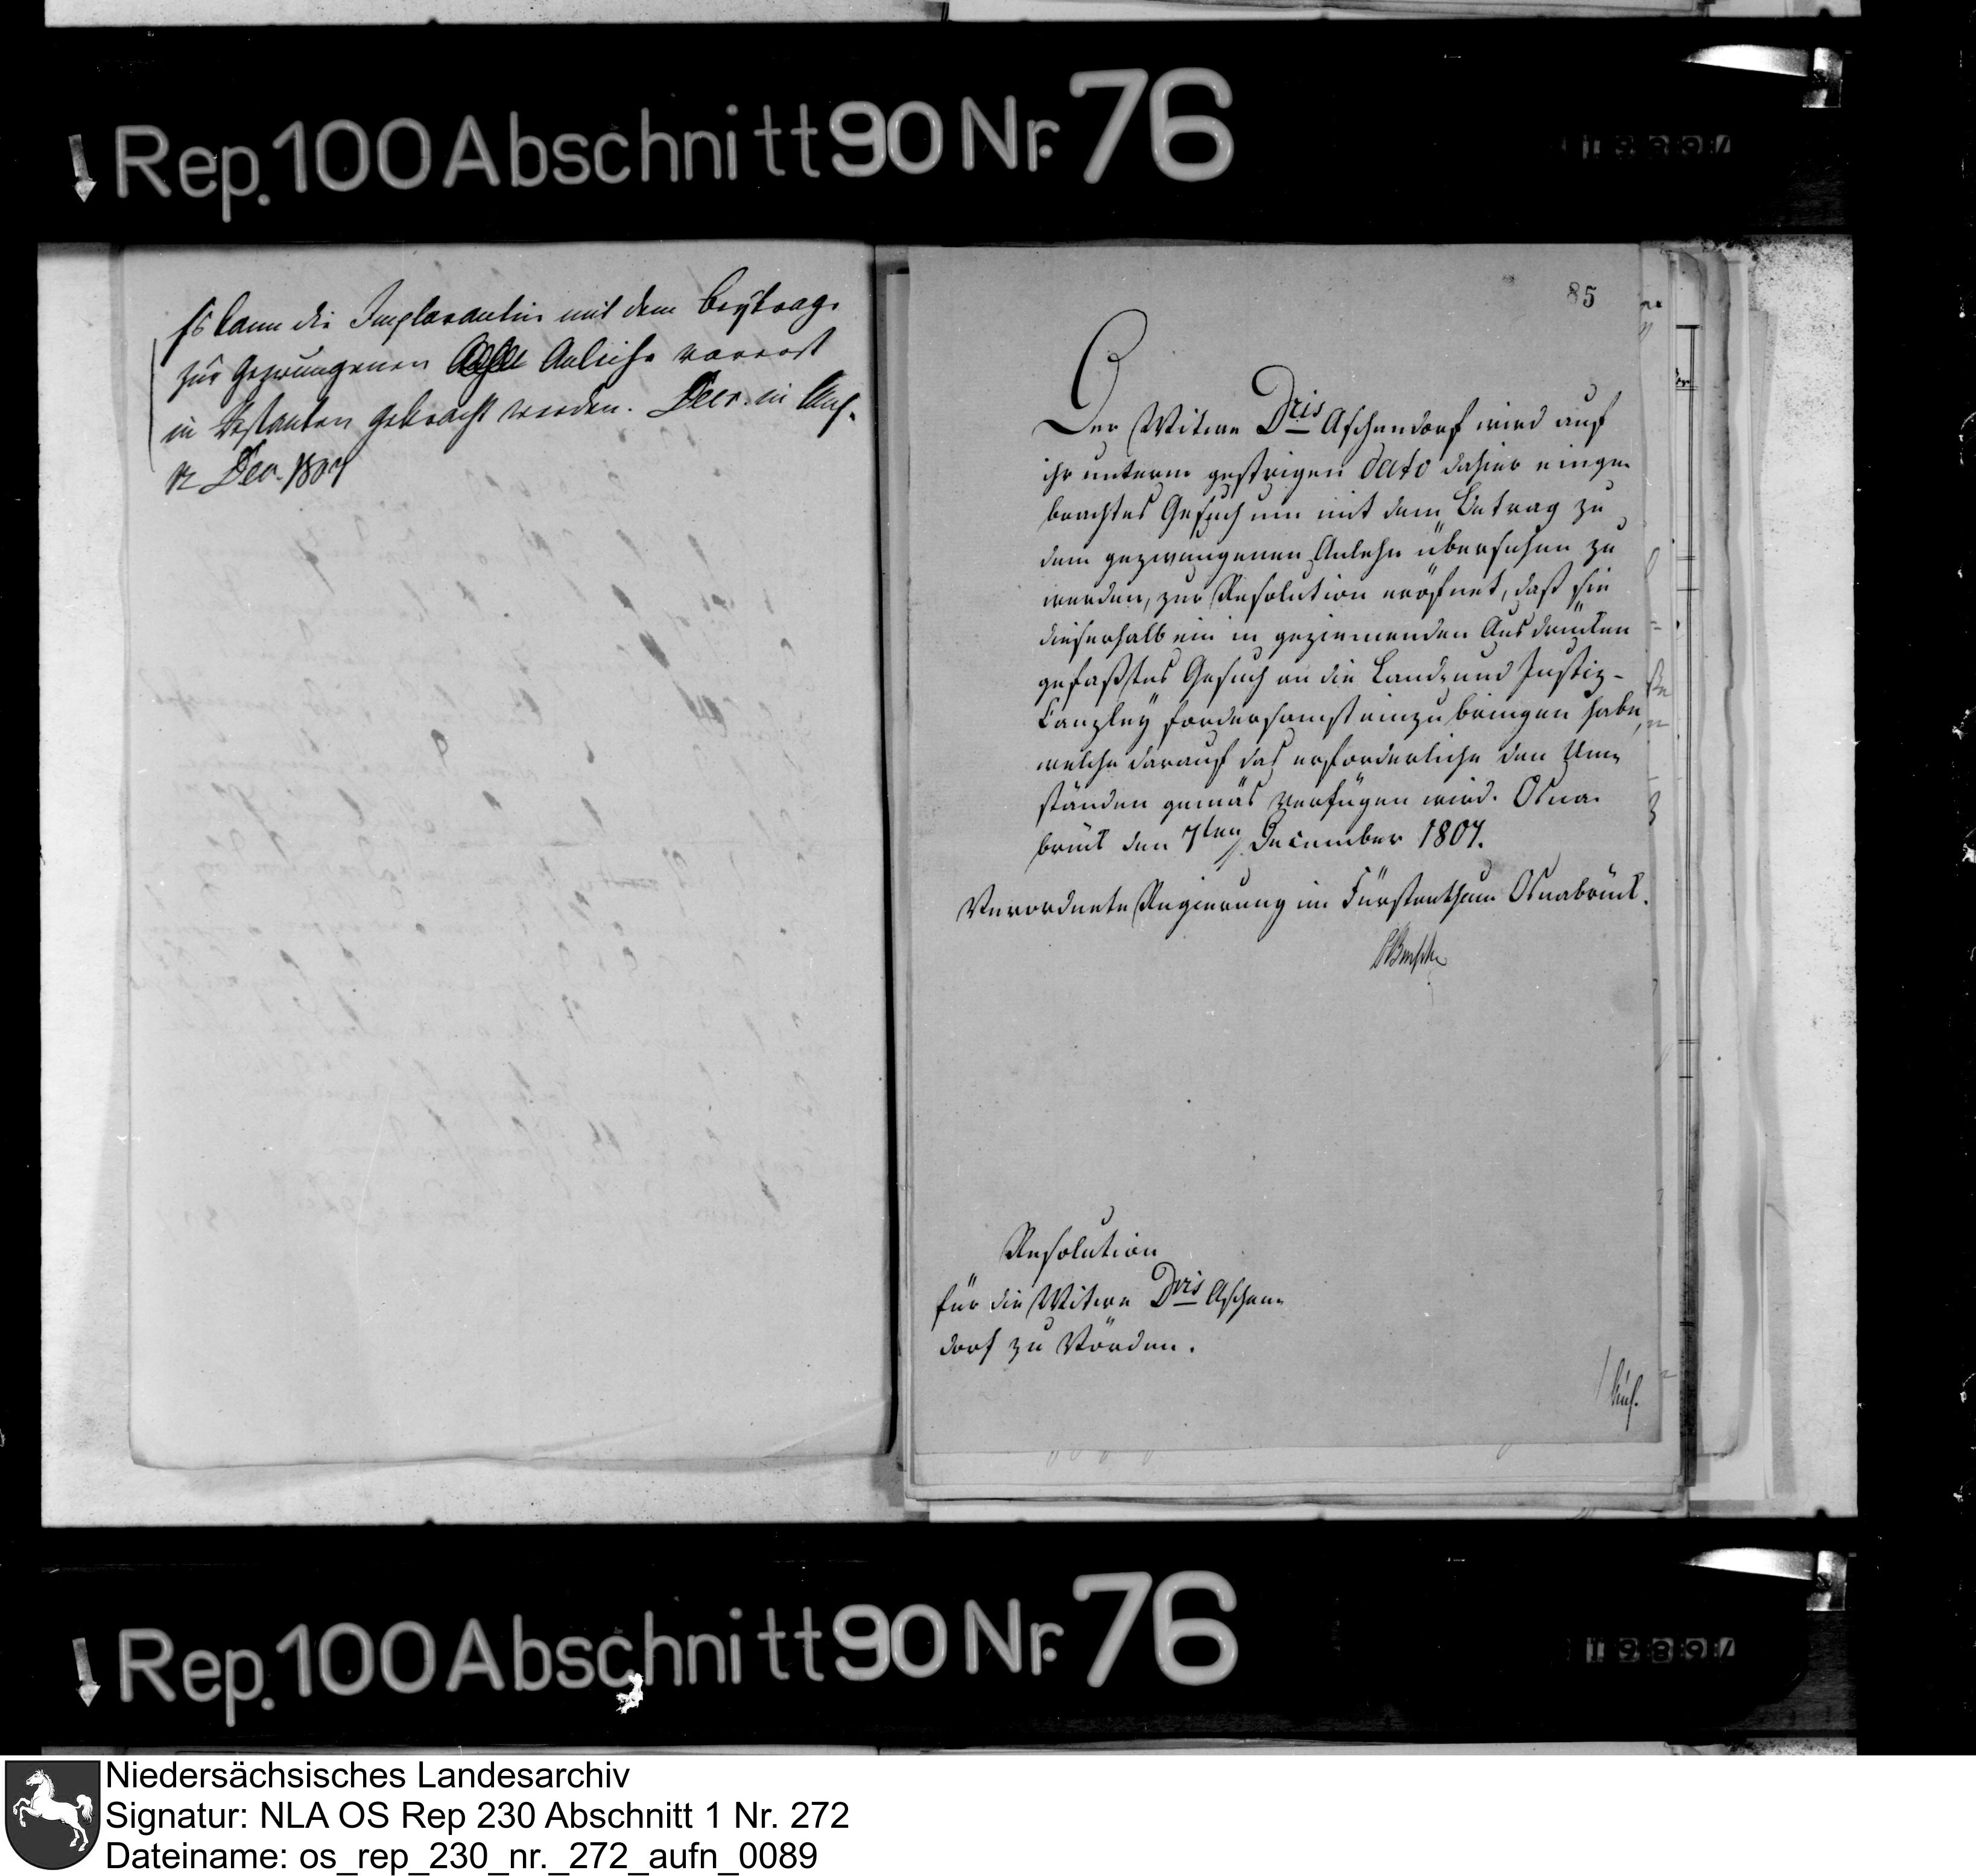 Rep. 100 Abschnitt 90 Nr. 76
Es kann die Implorantin mit dem Beytrage
zur gezwungenen Anleihe vorerst
in Restanten gebracht werden. Decr. in
12 Dec. 1807
85
Der Witwe Dris Aschendorf wird auf
ihr unterm gestrigen dato dahier einge-
brachtes Gesuch um mit dem Betrag zu
dem gezwungenen Anlehn übersehen zu
werden, zur Resolution eröfnet, daß sie
dieserhalb ein in geziemenden Ausdrücken
gefaßtes Gesuch an die Land- und Justiz-
Canzley fordersamst einzubringen habe,
welche darauf das erforderliche den Um-
ständen gemäs verfügen wird. Osna-
brück den 7ten December 1807.
Verordnete Regierung im Fürstenthum Osnabrück.
Resolution
für die Witwe Dris Aschen-
dorf zu Vörden.
Rep. 100 Abschnitt 90 Nr. 76
Niedersächsisches Landesarchiv
Signatur: NLA OS Rep 230 Abschnitt 1 Nr. 272
Dateiname: os_rep_230_nr._272_aufn_0089